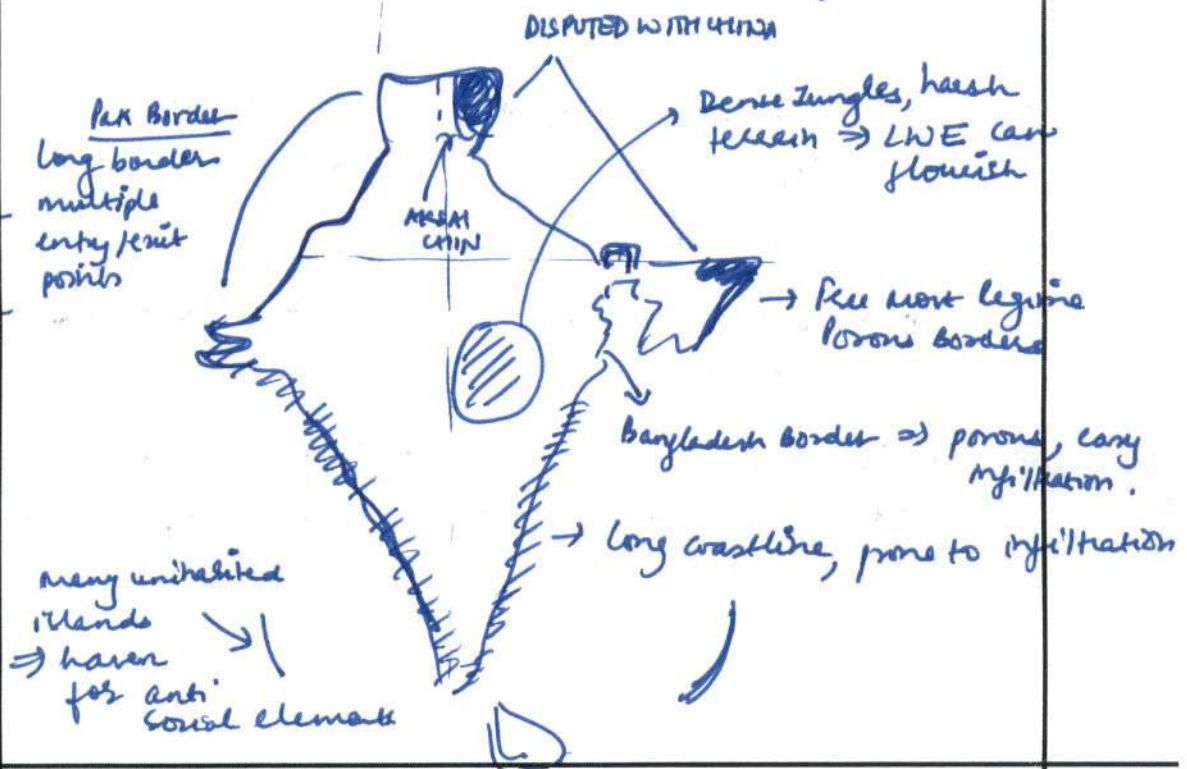 DISPUTED WITH CHINA
Pak Border
long border
multiple
entry/exit
points
Dense Jungles, harsh
terrain ⇒ LWE can
flourish
AKSAI
CHIN
→ Free
Porous Borders
Bangladesh Border ⇒ porous, easy
infiltration.
→ long coastline, prone to infiltration
many unihabited
islands
⇒ haven
for anti
social elements